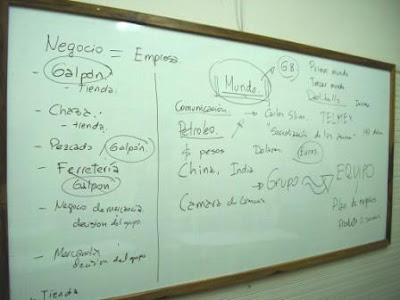 Negocio = Empresa.
- Galpón
- Tienda.
- Chaza.
- tienda.
- Pescado Galpón.
- Ferretería
Galpon
- Negocio de mercancia.
decision del grupo
- Mercancia
decision del grupo
- Tienda
Mundo.
G.8.
Primer mundo
Tercer mundo
Comunicación
Carlos Slim. TELMEX
Petroleo.
"Socialización de los
$ pesos Dolares. Euros.
China, India
Grupo EQUIPO
Camara de Comercio
Plan de negocios
Producto o servicio